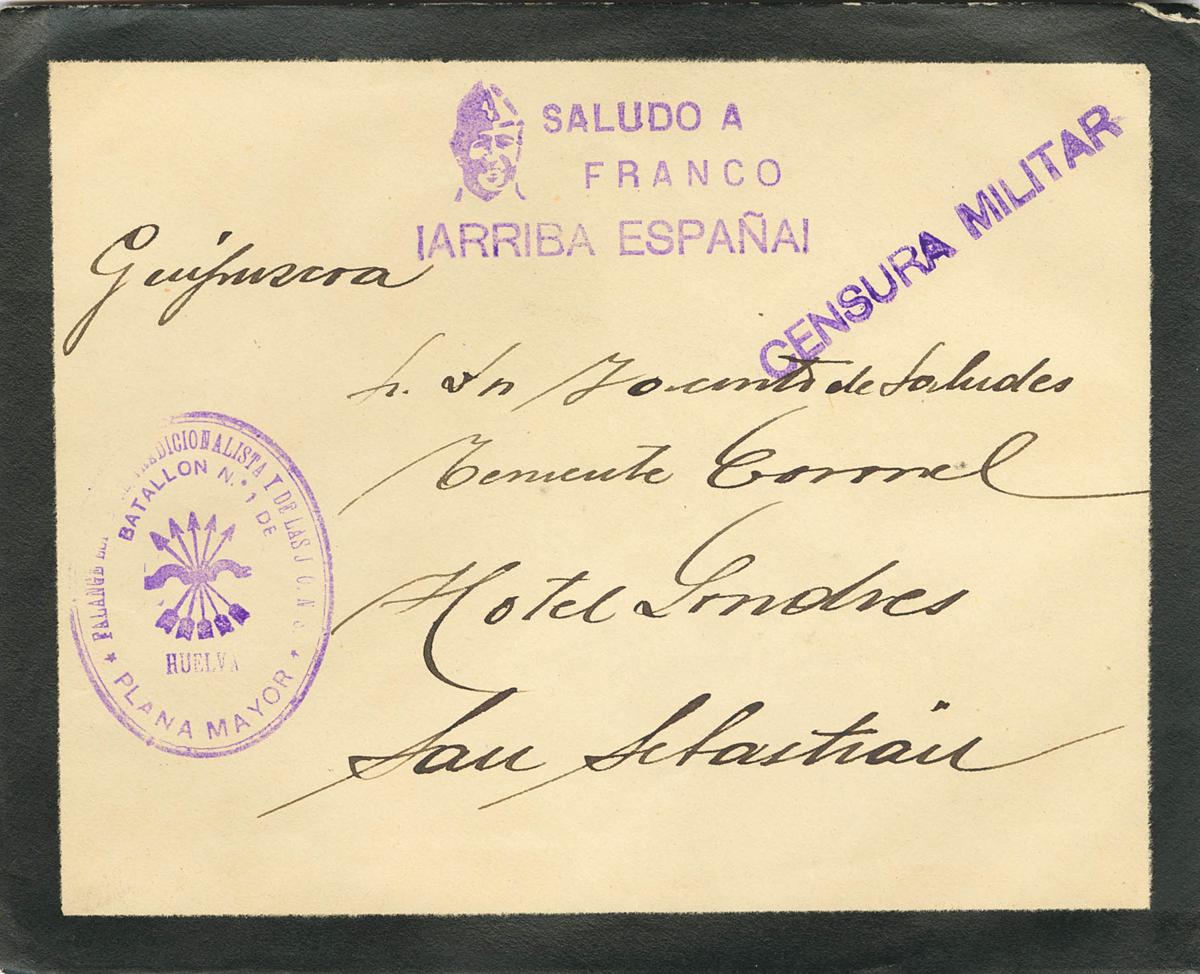 SALUDO A
FRANCO
¡ARRIBA ESPAÑA!
CENSURA MILITAR
Guipuscoa
Sr. Dn Jacinto de Saludes
Teniente Coronel
Hotel Londres
San Sebastián
FALANGE TRADICIONALISTA Y DE LAS J. O. N. S.
BATALLON N.º 1 DE
HUELVA
* PLANA MAYOR *